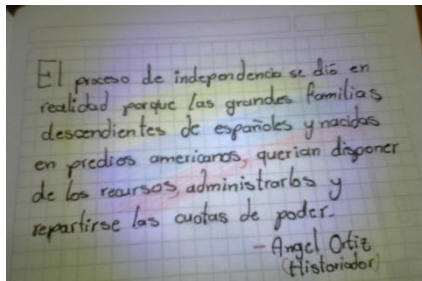 El proceso de independencia se dió en
realidad porque las grandes familias
descendientes de españoles y nacidos
en predios americanos, querian disponer
de los recursos, administrarlos y
repartirse las cuotas de poder.
- Angel Ortiz
(Historiador)